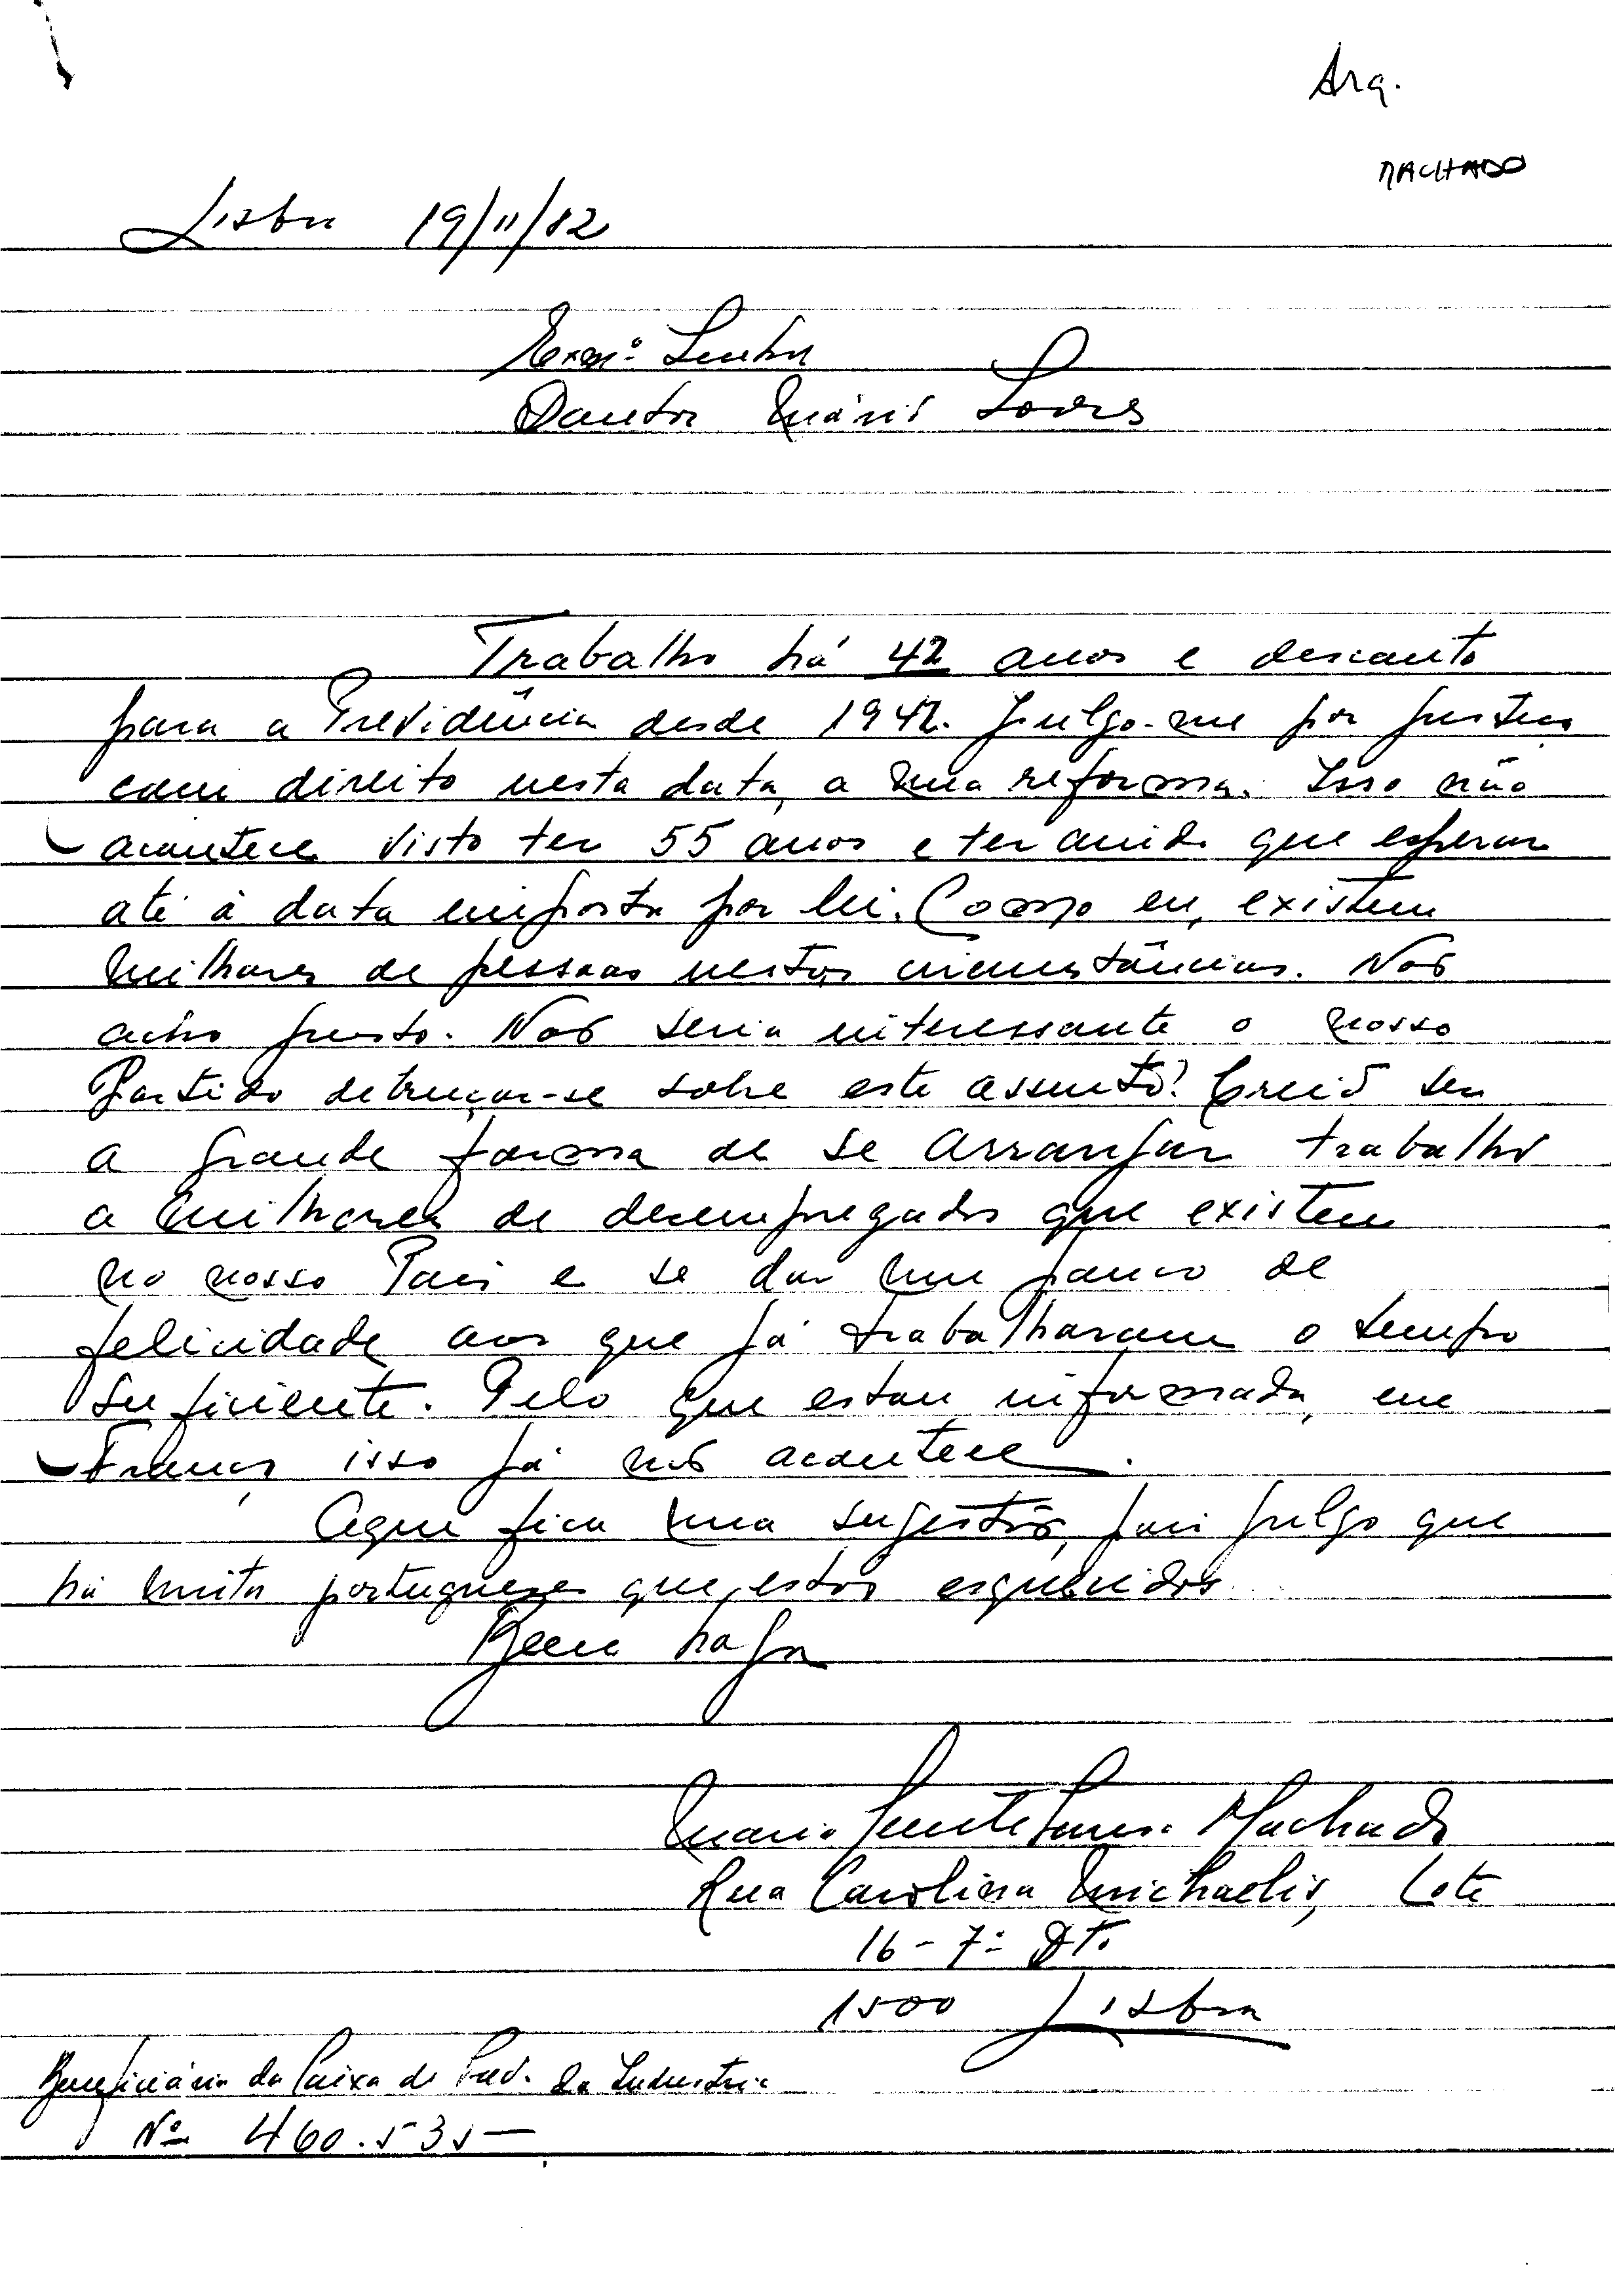 Arq.
MACHADO
Lisboa 19/11/82
Exmº. Senhor
Doutor Mário Soares
Trabalho há 42 anos e desconto
para a Previdência desde 1942. Julgo-me por justiça
com direito nesta data, a uma reforma. Isso não
acontece visto ter 55 anos e ter ainda que esperar
até à data imposta por lei. Como eu, existem
milhares de pessoas nestas circunstâncias. Não
acho justo. Não seria interessante o nosso
Partido debruçar-se sobre este assunto? Creio ser
a grande forma de se arranjar trabalho
a milhares de desempregados que existem
no nosso Pais e se dar um pouco de
felicidade aos que já trabalharam o tempo
suficiente. Pelo que estou informada, em
França isso já não acontece.
Aqui fica uma sugestão, pois julgo que
há muitos portugueses que estão esquecidos.
Bem haja
Maria Machado
Rua Carolina Michaelis, Lote
16-7º DTº
1500 Lisboa
Beneficiária da Caixa de Prev. da Industria
Nº 460.535